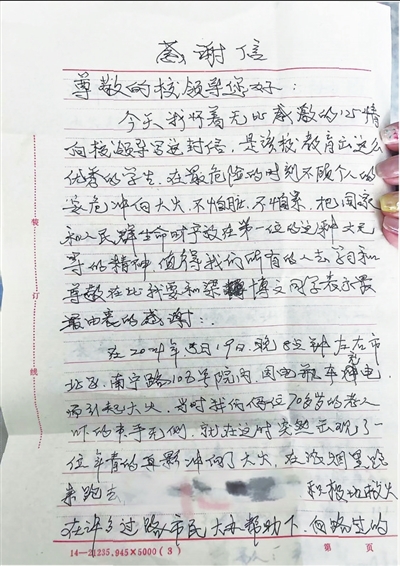 感谢信
尊敬的校领导您好:
今天我怀着无比感激的心情
向校领导写这封信,是该校教育出这么
优秀的学生,在最危险的时刻不顾个人的
安危冲向大火,不怕脏,不怕累,把国家
和人民群生命财产放在第一位的这种大无
畏的精神,值得我们所有的人去学习和
尊敬在此我要和梁博文同学表示最
最由衷的感谢:
在2024年5月19日晚8点钟左右市
北区,南宁路105号院内,因电瓶车爆电,
而引起大火,当时我们俩位70多岁的老人
吓的束手无策,就在这时突然出现了一
位年青的身影冲向了大火,在浓烟里跑
来跑去 积极地救火
在许多过路市民大力帮助下,向路过的
装
订
线
14—21235.945×5000(3)
第 页